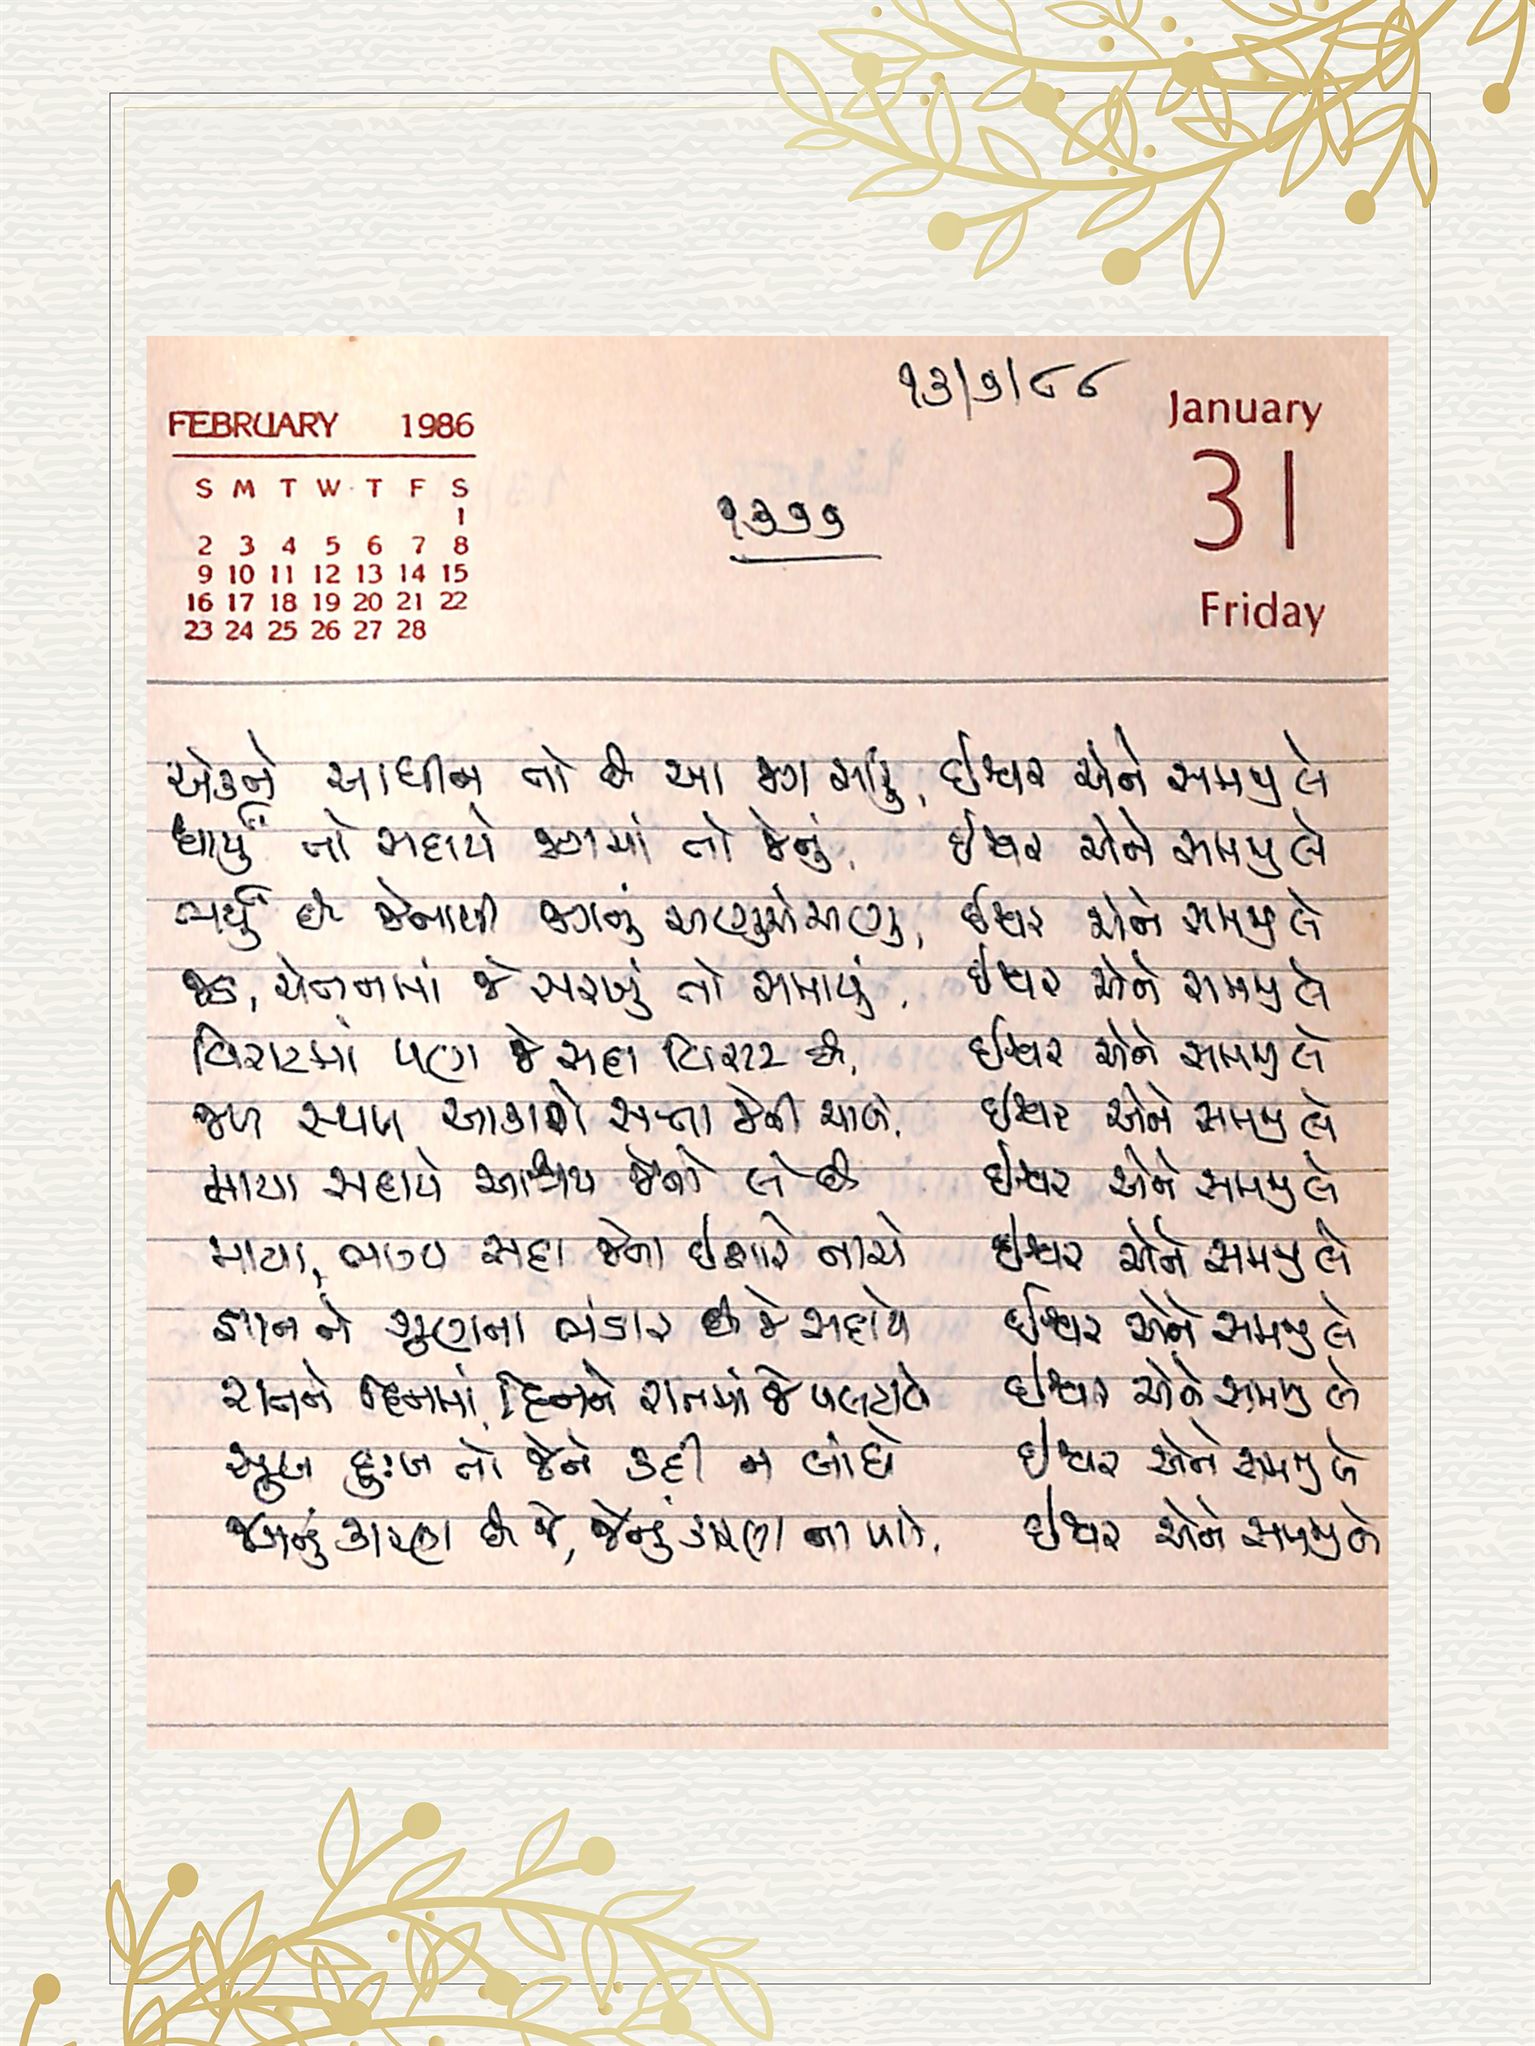 ૧૩/૭/૮૮
January
31
Friday
FEBRUARY 1986
S M T W T F S
1
2 3 4 5 6 7 8
9 10 11 12 13 14 15
16 17 18 19 20 21 22
23 24 25 26 27 28
૧૩૭૭
એકને આધીન તો છે આ જગ સારું, ઈશ્વર એને સમજી લે
ધાર્યું તો સદાયે જગમાં તો જેનું, ઈશ્વર એને સમજી લે
ભર્યું છે જેનાથી જગનું અણુયે અણુ, ઈશ્વર એને સમજી લે
જડ, ચેતનમાં જે સરખું તો સમાયું, ઈશ્વર એને સમજી લે
વિરાટમાં પણ જે સદા વિરાટ છે, ઈશ્વર એને સમજી લે
જળ સ્થળ આકાશે સત્તા જેની ચાલે, ઈશ્વર એને સમજી લે
માયા સદાયે આશ્રય જેનો લે છે ઈશ્વર એને સમજી લે
માયા, ભાગ્ય સદા જેના ઈશારે નાચે ઈશ્વર એને સમજી લે
જ્ઞાન ને ગુણના ભંડાર છે જે સદાયે ઈશ્વર એને સમજી લે
રાતને દિનમાં, દિનને રાતમાં જે પલટાવે ઈશ્વર એને સમજી લે
સુખ દુઃખ તો જેને કદી ન બાંધે ઈશ્વર એને સમજી લે
જગનું કારણ છે જે, જેનું કારણ ના મળે, ઈશ્વર એને સમજી લે